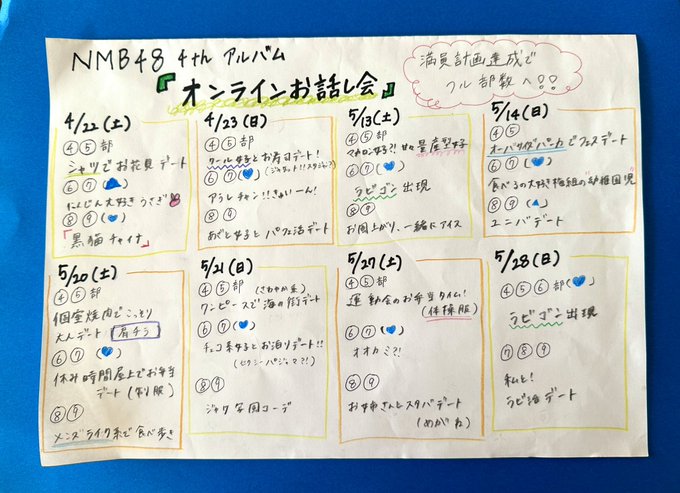 NMB48 4th アルバム
『オンラインお話し会』
満員計画達成で
フル部数へ!!
4/22(土)
④⑤部
シャツでお花見デート
⑥⑦(💙)
にんじん大好きうさぎ
⑧⑨(💙)
「黒猫チャイナ」
4/23(日)
④⑤部
クール女子とお寿司デート!
⑥⑦(💙)
アラレチャン!!きょいーん!
⑧⑨
あざと女子とパフェ活デート
5/13(土)
④⑤部
マカロン女子?!甘々量産型女子
⑥⑦(💙)
ラビゴン出現
⑧⑨
お風呂上がり、一緒にアイス
5/14(日)
④⑤
オーバーサイズパーカーでフェスデート
⑥⑦(💙)
食べるの大好き梅組の幼稚園児
⑧⑨(▲)
ユニバデート
5/20(土)
④⑤部
個室焼肉でこっそり
大人デート 肩チラ
⑥⑦(💙)
休み時間屋上でお弁当
デート(制服)
⑧⑨
メンズライク系で食べ歩き
5/21(日)
④⑤部(さわやか系)
ワンピースで海の街デート
⑥⑦(💙)
チェコ系女子とお泊りデート!!
(セクシーパジャマで?!)
⑧⑨
コーデ
5/27(土)
④⑤部
運動会のお弁当タイム!
(体操服)
⑥⑦(💙)
オオカミで!
⑧⑨
お姉さんとスタバデート
(めがね)
5/28(日)
④⑤⑥部(💙)
ラビゴン出現
⑦⑧⑨
私と!
ラビ活デート